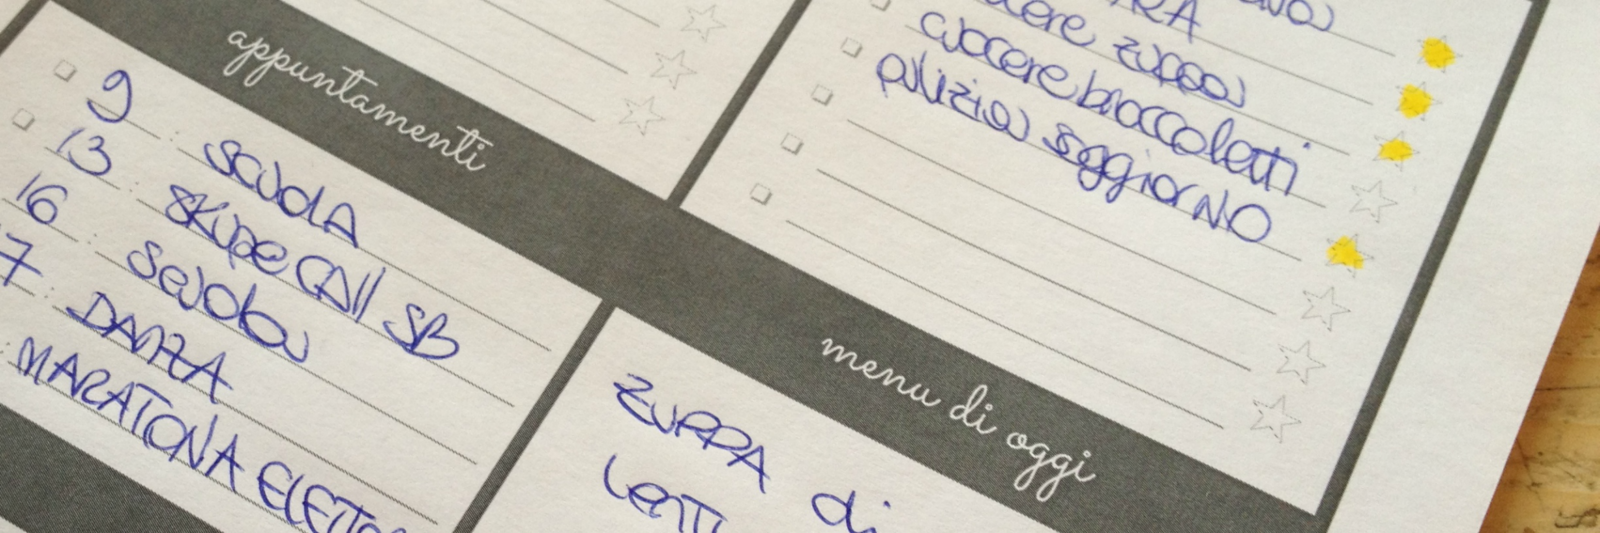 appuntamenti
9 : scuola
13 : SKYPE CALL SB
16 : scuola
7 : DANZA
: MARATONA
zuppa
cuocere broccoletti
pulizia soggiorno
menu di oggi
ZUPPA di